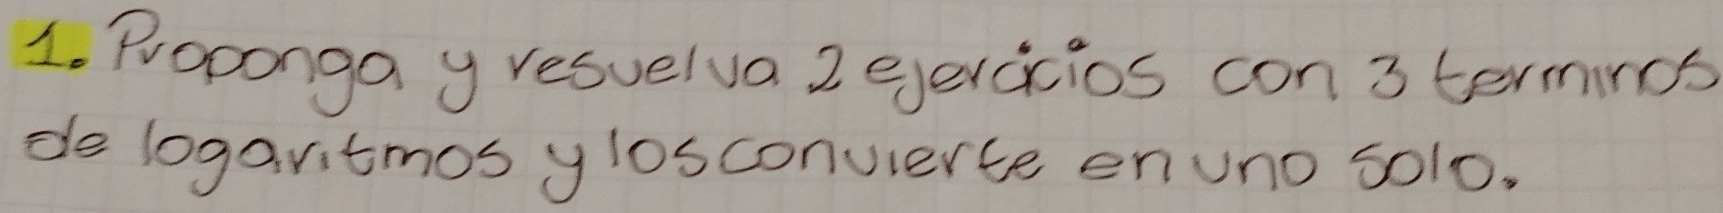 1. Proponga y resuelva 2 ejercicios con 3 terminos
de logaritmos y los convierte en uno solo.